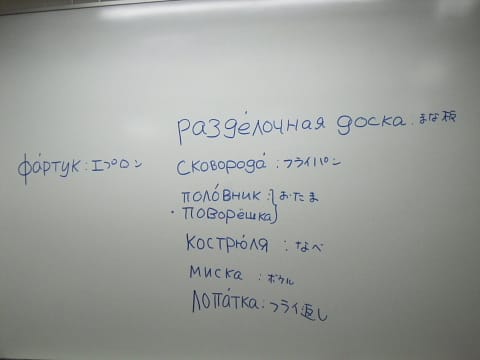 разде́лочная доска: まな板
фа́ртук: エプロン
сковорода́: フライパン
поло́вник: } おたま
・поворёшка
кострю́ля: なべ
миска: ボウル
лопа́тка: フライ返し